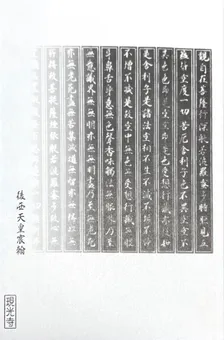 觀自在菩薩行深般若波羅蜜多時照見五
蘊皆空度一切苦厄舍利子色不異空空不
異色色即是空空即是色受想行識亦復如
是舍利子是諸法空相不生不滅不垢不淨
不增不減是故空中無色無受想行識無眼
耳鼻舌身意無色聲香味觸法無眼界乃至
無意識界無無明亦無無明盡乃至無老死
亦無老死盡無苦集滅道無智亦無得以無
所得故菩提薩埵依般若波羅蜜多故心無
後西天皇宸翰
現光寺